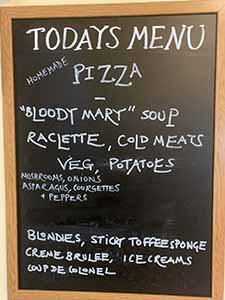 TODAYS MENU
HOMEMADE
PIZZA
–
"BLOODY MARY" SOUP
RACLETTE, COLD MEATS
VEG, POTATOES
MUSHROOMS, ONIONS
ASPARAGUS, COURGETTES
+ PEPPERS
BLONDIES, STICKY TOFFEE SPONGE
CREME BRULEE, ICE CREAMS
COUP DE COLONEL